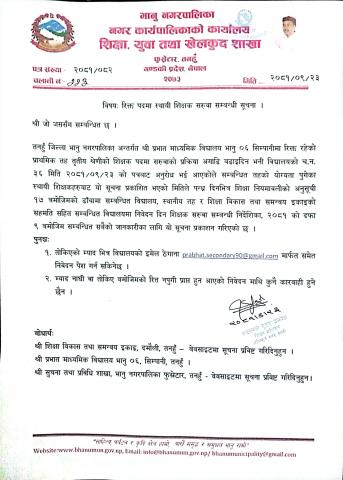 भानु नगरपालिका
नगर कार्यपालिकाको कार्यालय
शिक्षा, युवा तथा खेलकुद शाखा
गण्डकी प्रदेश, नेपाल
पत्र संख्या:- २०८१/०८२
२०७३
चलानी नं.:
मिति :- २०८१/०९/२३
विषय: रिक्त पदमा स्थायी शिक्षक सरुवा सम्बन्धी सूचना ।
श्री जो जससँग सम्बन्धित छ ।
तनहुँ जिल्ला भानु नगरपालिका अन्तर्गत श्री प्रभात माध्यमिक विद्यालय भानु ०६ सिम्पानीमा रिक्त रहेको
प्राथमिक तह तृतीय श्रेणीको शिक्षक पदमा सरुवाको प्रक्रिया अगाडि बढाइदिन भनी विद्यालयको च.नं.
३६ मिति २०८१/०९/२३ को पत्रबाट अनुरोध भई आएकोले सम्बन्धित तहको योग्यता पुगेका
स्थायी शिक्षकहरुबाट यो सूचना प्रकाशित भएको मितिले पन्ध्र दिनभित्र शिक्षा नियमावलीको अनुसूची
१७ बमोजिमको ढाँचामा सम्बन्धित विद्यालय, स्थानीय तह र शिक्षा विकास तथा समन्वय इकाइको
सहमति सहित सम्बन्धित विद्यालयमा निवेदन दिन शिक्षक सरुवा सम्बन्धी निर्देशिका, २०८१ को दफा
९ बमोजिम सम्बन्धित सबैको जानकारीका लागि यो सूचना प्रकाशन गरिएको छ ।
पुनश्च:
१. तोकिएको म्याद भित्र विद्यालयको इमेल ठेगाना prabhat.secondary90@gmail.com मार्फत समेत
निवेदन पेश गर्न सकिनेछ ।
२. म्याद नाघी वा तोकिए बमोजिमको रित नपुगी प्राप्त हुन आएको निवेदन माथि कुनै कारवाही हुने
छैन ।
२०८१/९/२३
बोधार्थ:
श्री शिक्षा विकास तथा समन्वय इकाइ, दमौली, तनहुँ – वेवसाइटमा सूचना प्रविष्ट गरिदिनुहुन ।
श्री प्रभात माध्यमिक विद्यालय भानु ०६, सिम्पानी, तनहुँ ।
श्री सुचना तथा प्रविधि शाखा, भानु नगरपालिका फुस्रेटार, तनहुँ - वेवसाइटमा सूचना प्रविष्ट गरिदिनुहुन।
Website:www.bhanumun.gov.np, Email: info@bhanumun.gov.np/ bhanumunicipality@gmail.com